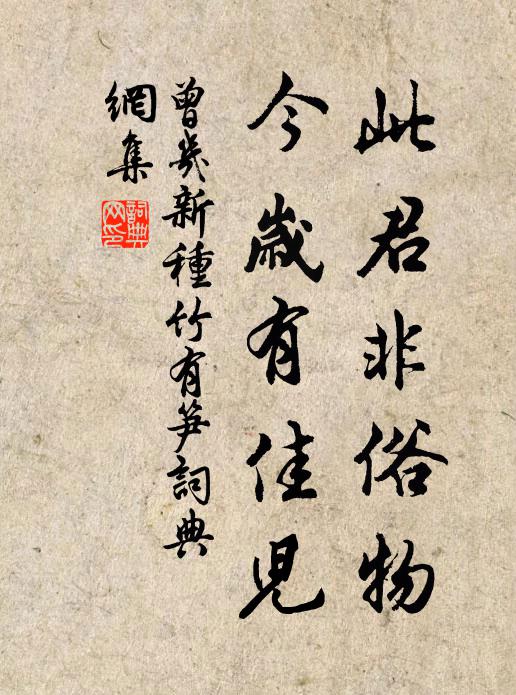 此君非俗物
今歲有佳兒
曾幾新種竹有笋詞典
網集
詞典網印